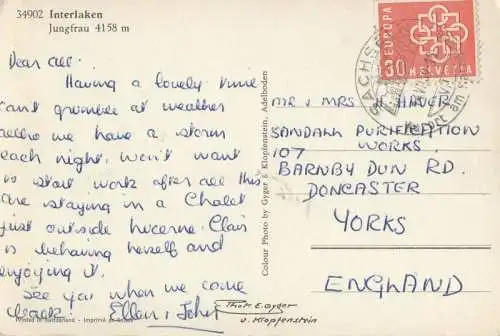 34902 Interlaken
Jungfrau 4158 m
Dear all.
Having a lovely time
cant grumble at weather
altho we have a storm
each night. Won't want
to start work after all this
are staying in a Chalet
just outside Lucerne. Clair
is behaving herself and
enjoying it.
See you when we come
back. Ellen & John
Printed in Switzerland - Imprimé en Suisse
Colour Photo by Gyger & Klopfenstein, Adelboden
EUROPA
30 HELVETIA
SACHS
am
MR & MRS
SANDALL PURIFICATION
WORKS.
107
BARNBY DUN RD.
DONCASTER
YORKS
ENGLAND
Thom. E. Gyger
u. Klopfenstein